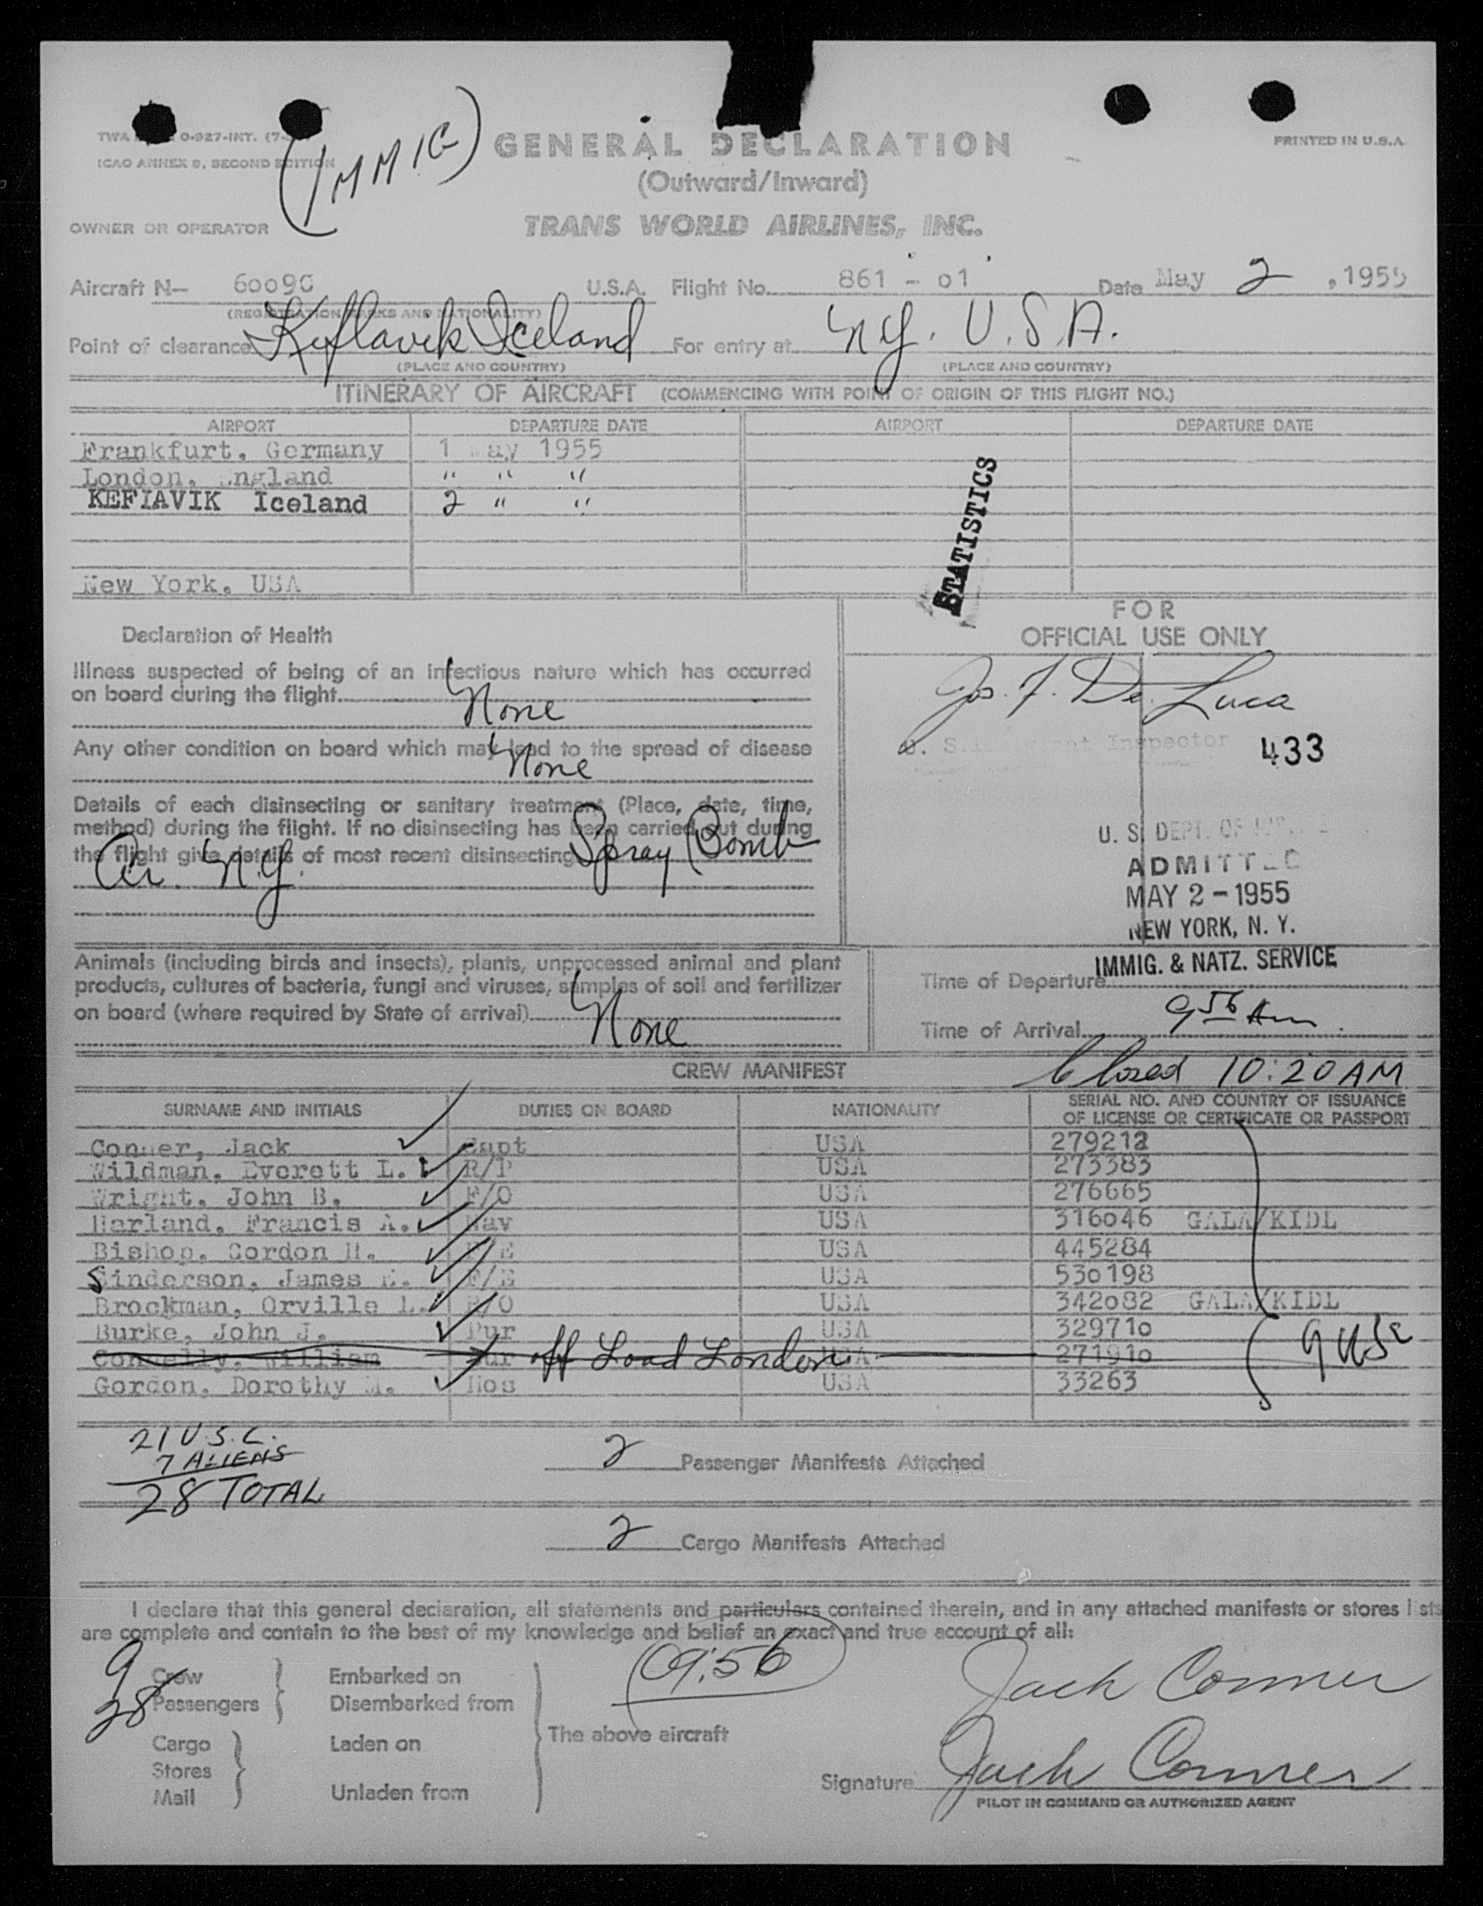 TWA 0-927-INT. (7-
ICAO ANNEX 9, SECOND EDITION
(IMMIG)
GENERAL DECLARATION
(Outward/Inward)
PRINTED IN U.S.A.
OWNER OR OPERATOR
TRANS WORLD AIRLINES, INC.
Aircraft N— 6009C U.S.A. Flight No. 861 - 01 Date May 2, 1955
(REGISTRATION MARKS AND NATIONALITY)
Point of clearance Keflavik Iceland For entry at N.Y. U.S.A.
(PLACE AND COUNTRY) (PLACE AND COUNTRY)
ITINERARY OF AIRCRAFT (COMMENCING WITH POINT OF ORIGIN OF THIS FLIGHT NO.)
AIRPORT DEPARTURE DATE AIRPORT DEPARTURE DATE
Frankfurt, Germany 1 May 1955
London, England " " "
KEFIAVIK Iceland 2 " "
New York, USA
STATISTICS
Declaration of Health
Illness suspected of being of an infectious nature which has occurred
on board during the flight None
Any other condition on board which may lead to the spread of disease
None
Details of each disinsecting or sanitary treatment (Place, date, time,
method) during the flight. If no disinsecting has been carried out during
the flight give details of most recent disinsecting Spray Bomb
Ar. N.Y.
FOR
OFFICIAL USE ONLY
Jos. F. De Luca
U. S. Immigrant Inspector 433
U. S. DEPT. OF
ADMITTED
MAY 2 - 1955
NEW YORK, N. Y.
IMMIG. & NATZ. SERVICE
Animals (including birds and insects), plants, unprocessed animal and plant
products, cultures of bacteria, fungi and viruses, samples of soil and fertilizer
on board (where required by State of arrival) None
Time of Departure
Time of Arrival 9 56 Am
CREW MANIFEST
Closed 10:20 AM
SURNAME AND INITIALS DUTIES ON BOARD NATIONALITY SERIAL NO. AND COUNTRY OF ISSUANCE
OF LICENSE OR CERTIFICATE OR PASSPORT
Conner, Jack Capt USA 279212
Wildman, Everett L. R/P USA 273383
Wright, John B. F/O USA 276665
Harland, Francis A. Nav USA 316046 GALA/KIDL
Bishop, Gordon H. F/E USA 445284
Sinderson, James E. F/E USA 530198
Brockman, Orville L. R/O USA 342082 GALA/KIDL
Burke, John J. Pur USA 329710
Connelly, William Pur off Load London USA 271910
Gordon, Dorothy M. Hos USA 33263
9 USC
21 U.S.C.
7 ALIENS
28 TOTAL
2 Passenger Manifests Attached
2 Cargo Manifests Attached
I declare that this general declaration, all statements and particulars contained therein, and in any attached manifests or stores lists
are complete and contain to the best of my knowledge and belief an exact and true account of all:
9 Crew
28 Passengers
Embarked on
Disembarked from
Cargo
Stores
Mail
Laden on
Unladen from
The above aircraft
09:56
Jack Conner
Signature Jack Conner
PILOT IN COMMAND OR AUTHORIZED AGENT